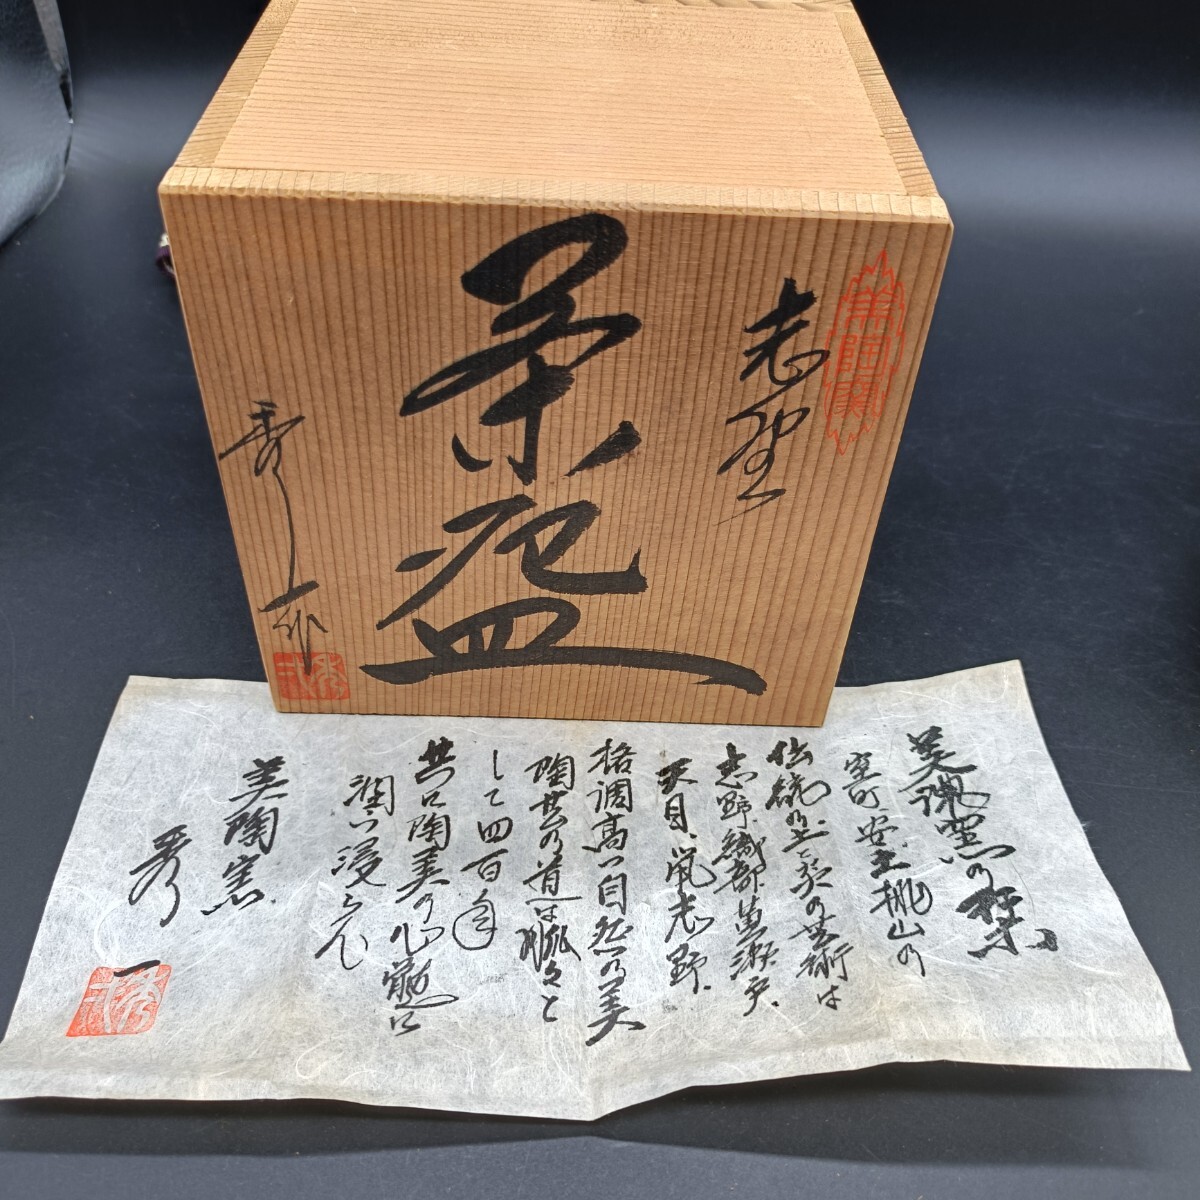 志野
茶盌
秀一作
美陶窯
美陶窯の栞
室町、安土桃山の
伝統の土と炎の芸術は
志野、織部、黄瀬戸、
天目、鼠志野、
格調高い自然の美
陶芸の道は脈々と
して四百年
共に陶美の心髄に
潤い浸らん
美陶窯
秀一